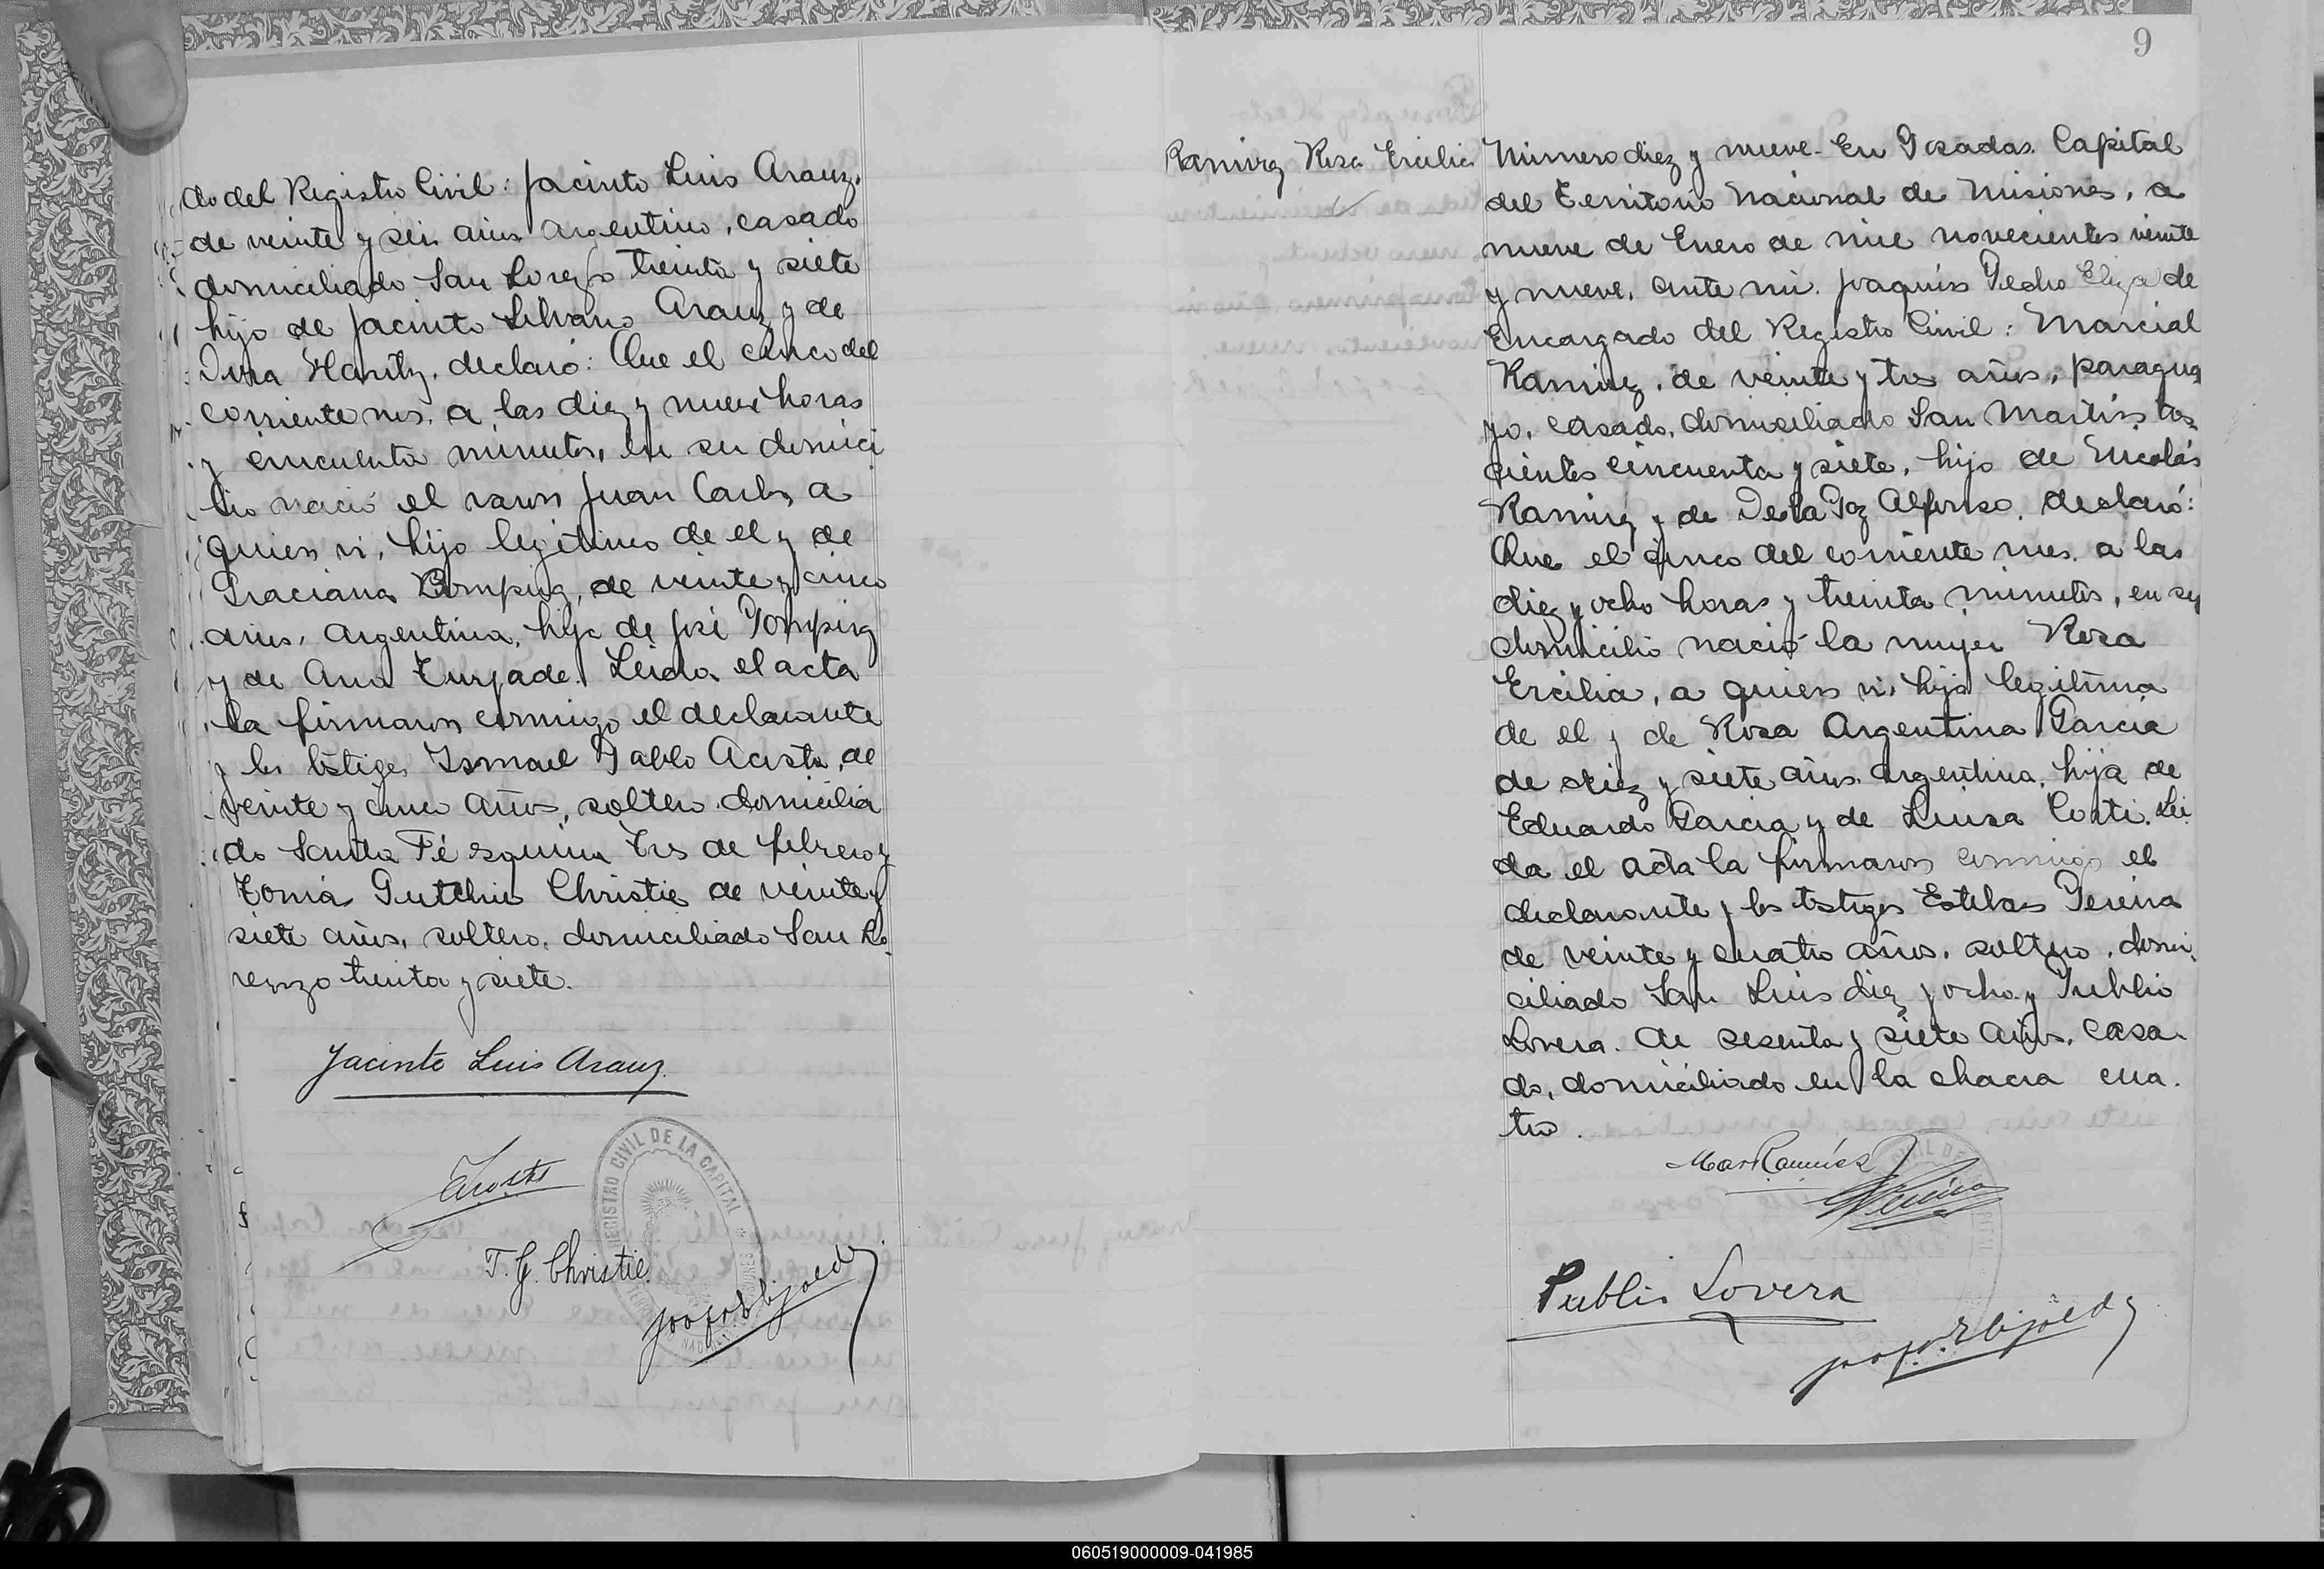 do del Registro Civil: Jacinto Luis Arauz,
de veinte y seis años argentino, casado
domiciliado San Lorenzo treinta y siete
hijo de Jacinto Silvano Arauz y de
declaró: Que el cinco del
corriente mes, a las diez y nueve horas
y cincuenta minutos, en su domici
lio nació el varon Juan Carlos a
quien vi, hijo legitimo de el y de
Graciana Pomping, de veinte y cinco
años, argentina, hija de José Pomping
y de Ana Leida el acta
la firmaron conmigo el declarante
y los testigos Ismael Pablo Acosta, de
veinte y cinco años, soltero domicilia
do Santa Fé esquina Tres de febrero y
Christie de veinte y
siete años, soltero, domiciliado San Lo
renzo treinta y siete.
Jacinto Luis Arauz
Acosta
REGISTRO CIVIL DE LA CAPITAL
T. G. Christie
9
Ramirez Rosa Ercilia
Número diez y nueve- En Posadas Capital
del Territorio Nacional de Misiones, a
nueve de Enero de mil novecientos veinte
y nueve, ante mi Joaquin Pedro Elizalde
Encargado del Registro Civil: Marcial
Ramirez, de veinte y tres años, paragua
yo, casado, domiciliado San Martin tres
cientos cincuenta y siete, hijo de Nicolás
Ramirez y de De la Paz Alfonso, declaró:
Que el cinco del corriente mes a las
diez y ocho horas y treinta minutos, en su
domicilio nació la mujer Rosa
Ercilia, a quien vi, hija legitima
de el y de Rosa Argentina Garcia
de diez y siete años argentina, hija de
Eduardo Garcia y de Luisa Conti. Lei
da el acta la firmaron conmigo el
declarante y los testigos Esteban Pereira
de veinte y cuatro años, soltero, domi
ciliado San Luis diez y ocho y Publio
Lovera de sesenta y siete años, casa
do, domiciliado en la chacra cua
tro.
Mar Ramírez
Pereira
Publio Lovera
060519000009-041985